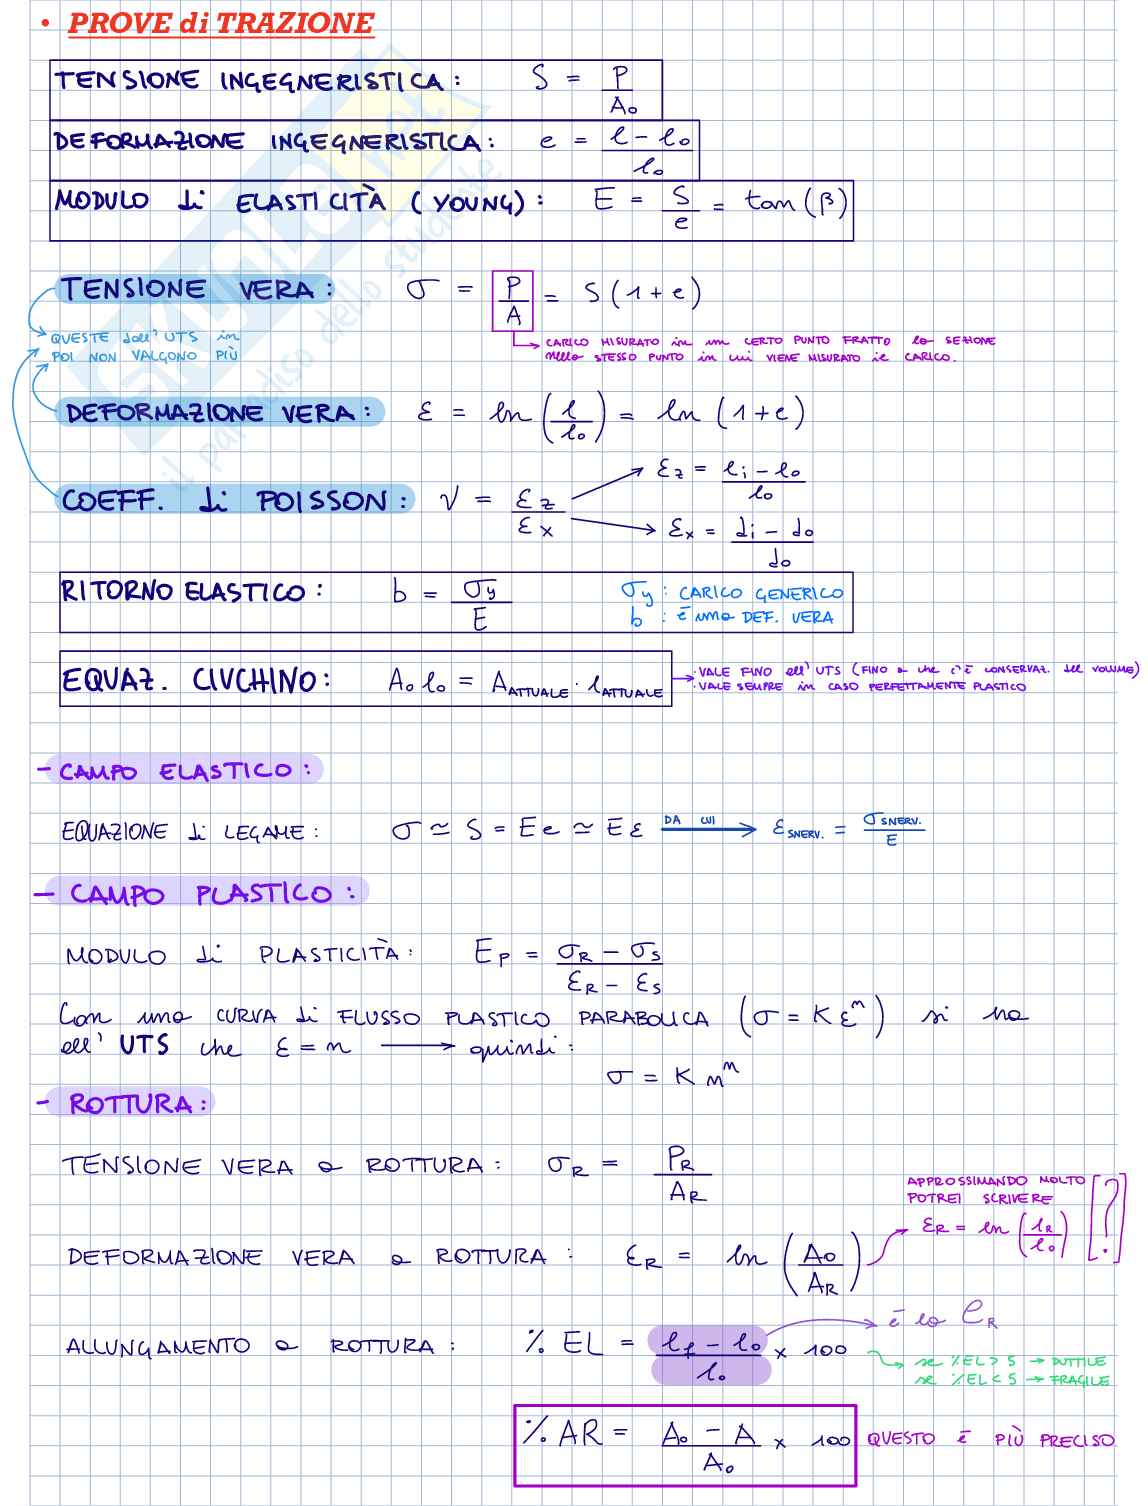 • PROVE di TRAZIONE
TENSIONE INGEGNERISTICA: S = P / A₀
DEFORMAZIONE INGEGNERISTICA: e = (l - l₀) / l₀
MODULO di ELASTICITÀ (YOUNG): E = S / e = tan(β)
TENSIONE VERA: σ = P / A = S(1+e)
QUESTE dall'UTS in
POI NON VALGONO PIÙ
CARICO MISURATO in un CERTO PUNTO FRATTO la SEZIONE
nello STESSO PUNTO in cui VIENE MISURATO il CARICO.
DEFORMAZIONE VERA: ε = ln(l / l₀) = ln(1+e)
COEFF. di POISSON: ν = εz / εx
εz = (li - l₀) / l₀
εx = (di - d₀) / d₀
RITORNO ELASTICO: b = σy / E
σy : CARICO GENERICO
b : è una DEF. VERA
EQUAZ. CIUCHINO: A₀ l₀ = A ATTUALE · l ATTUALE
· VALE FINO all'UTS (FINO a che c'È CONSERVAZ. del VOLUME)
· VALE SEMPRE in CASO PERFETTAMENTE PLASTICO
- CAMPO ELASTICO:
EQUAZIONE di LEGAME: σ ≃ S = E e ≃ E ε DA CUI → ε SNERV. = σ SNERV. / E
- CAMPO PLASTICO:
MODULO di PLASTICITÀ: Ep = (σR - σS) / (εR - εS)
Con una CURVA di FLUSSO PLASTICO PARABOLICA (σ = K εⁿ) si ha
all'UTS che ε = n → quindi:
σ = K nⁿ
- ROTTURA:
TENSIONE VERA a ROTTURA: σR = PR / AR
APPROSSIMANDO MOLTO
POTREI SCRIVERE
εR = ln(lR / l₀) [?]
DEFORMAZIONE VERA a ROTTURA: εR = ln(A₀ / AR)
ALLUNGAMENTO a ROTTURA: % EL = (lf - l₀) / l₀ × 100
è la eR
se %EL > 5 → DUTTILE
se %EL < 5 → FRAGILE
% AR = (A₀ - A) / A₀ × 100 QUESTO è PIÙ PRECISO
il paradiso dello studente